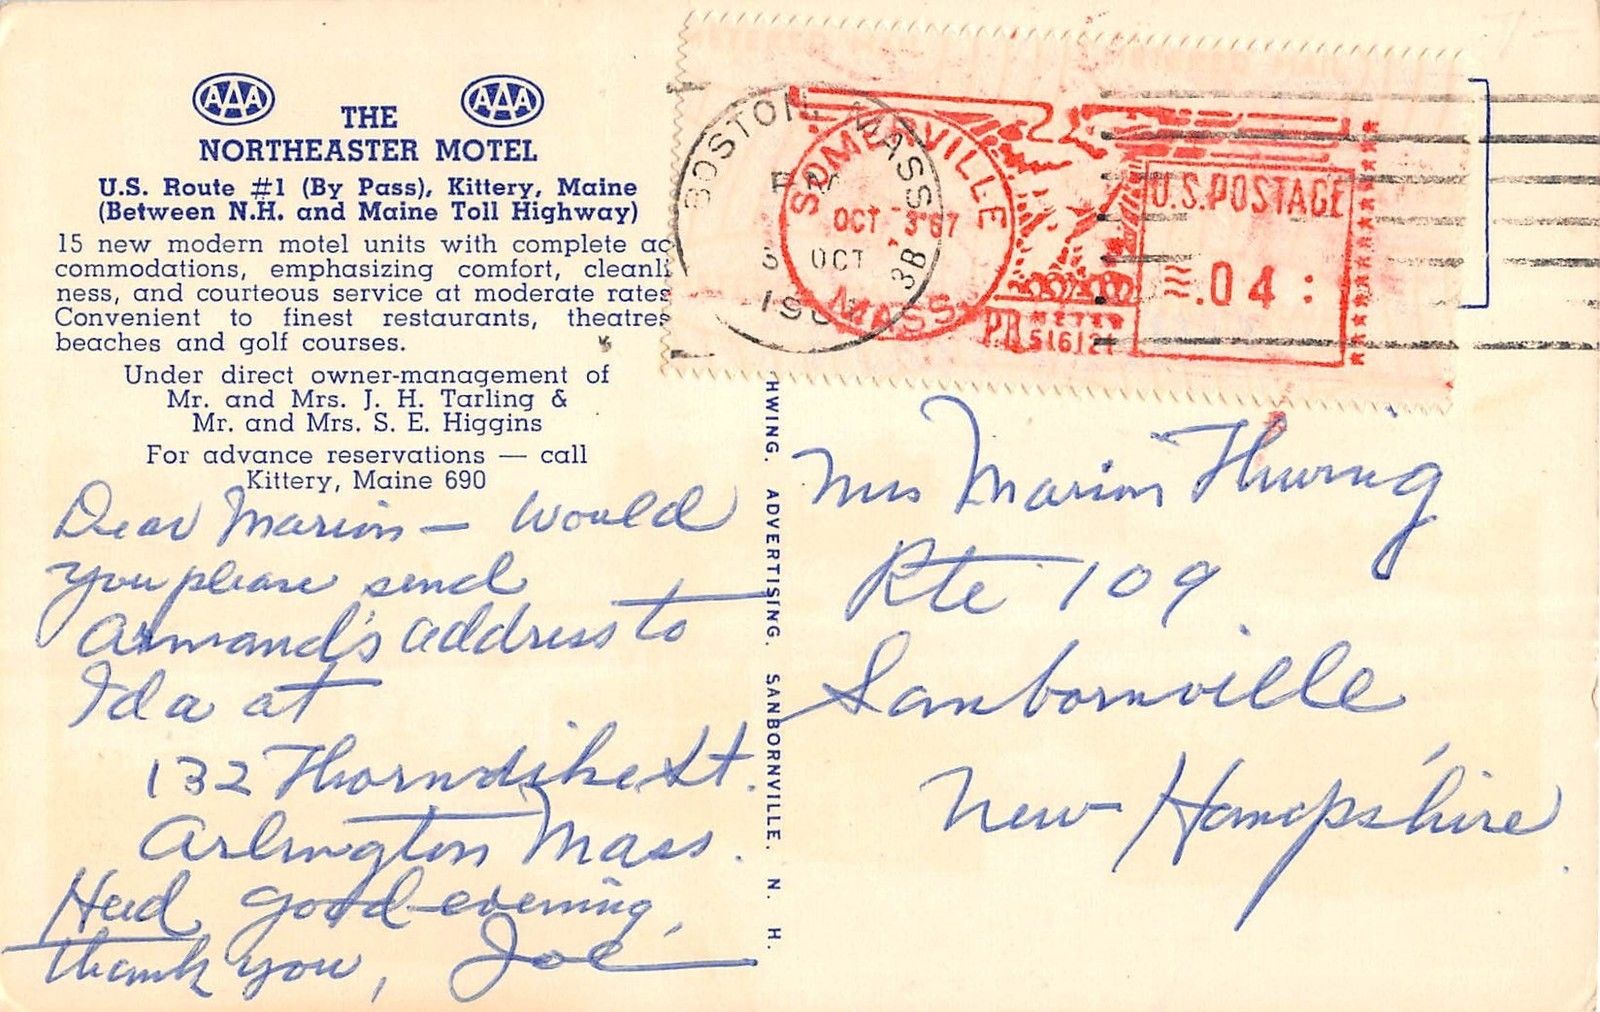 AAA AAA
THE
NORTHEASTER MOTEL
U.S. Route #1 (By Pass), Kittery, Maine
(Between N.H. and Maine Toll Highway)
15 new modern motel units with complete ac
commodations, emphasizing comfort, cleanli
ness, and courteous service at moderate rates
Convenient to finest restaurants, theatres
beaches and golf courses.
Under direct owner-management of
Mr. and Mrs. J. H. Tarling &
Mr. and Mrs. S. E. Higgins
For advance reservations — call
Kittery, Maine 690
Dear Marion — Would
you please send
Armand's address to
Ida at
132 Thorndike St.
Arlington Mass.
Had good evening,
thank you, Joe
HWING. ADVERTISING. SANBORNVILLE. N. H.
BOSTON MASS
PM
3 OCT
3B
SOMERVILLE
OCT -3'67
MASS
U.S. POSTAGE
.04
PB METER
Mrs Marion Thwing
Rte 109
Sanbornville
New Hampshire